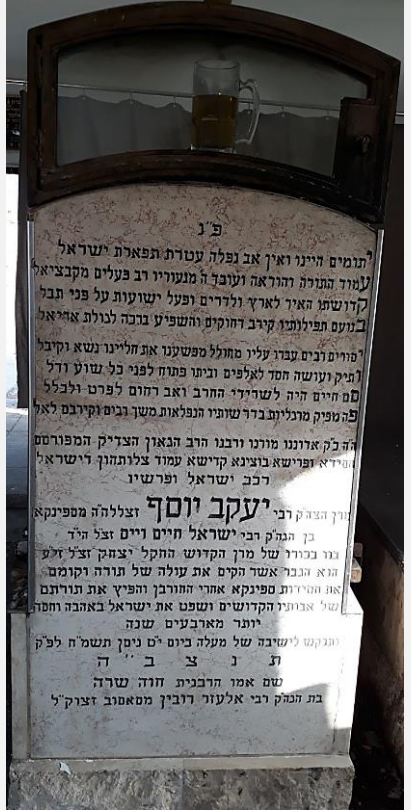 פ״נ
יתומים היינו ואין אב נפלה עטרת תפארת ישראל
עמוד התורה והוראה ועובד ה' מנעוריו רב פעלים מקבציאל
קדושתו האיר לארץ ולדרים ופעל ישועות על פני תבל
בנועם תפילותיו קירב רחוקים והשפיע ברכה לגולת אריאל
יסורים רבים עברו עליו מחולל מפשענו את חליינו נשא וקיבל
ותיק ועושה חסד לאלפים וביתו פתוח לפני כל שוע ודל
סם חיים היה לשרידי החרב ואב רחום לפרט ולכלל
פה מפיק מרגליות בדרשותיו הנפלאות משך רבים וקירבם לאל
ה״ה כ״ק אדוננו מורנו ורבנו הרב הגאון הצדיק המפורסם
חסידא ופרישא בוצינא קדישא עמוד צלותהון דישראל
רכב ישראל ופרשיו
מרן הצה״ק רבי יעקב יוסף זצללה״ה מספינקא
בן הגה״ק רבי ישראל חיים ווייס זצ״ל הי״ד
בנו בכורו של מרן הקדוש החקל יצחק זצ״ל זי״ע
הוא הגבר אשר הקים את עולה של תורה וקומם
את חסידות ספינקא אחרי החורבן והפיץ את תורתם
של אבותיו הקדושים ושפט את ישראל באהבה וחסד
יותר מארבעים שנה
ונתבקש לישיבה של מעלה ביום י״ט ניסן תשמ״ח לפ״ק
ת נ צ ב ״ ה
שם אמו הרבנית חוה שרה
בת הגה״ק רבי אלעזר רובין מסאסוב זצוק״ל